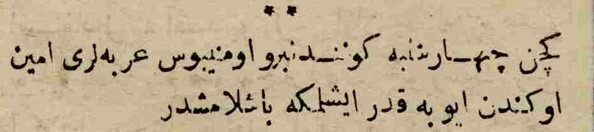 * *
كچن چهارشنبه كونندنبرو اومنيبوس عربه‌لرى امين
اوكندن ايوبه قدر ايشلمكه باشلامشدر